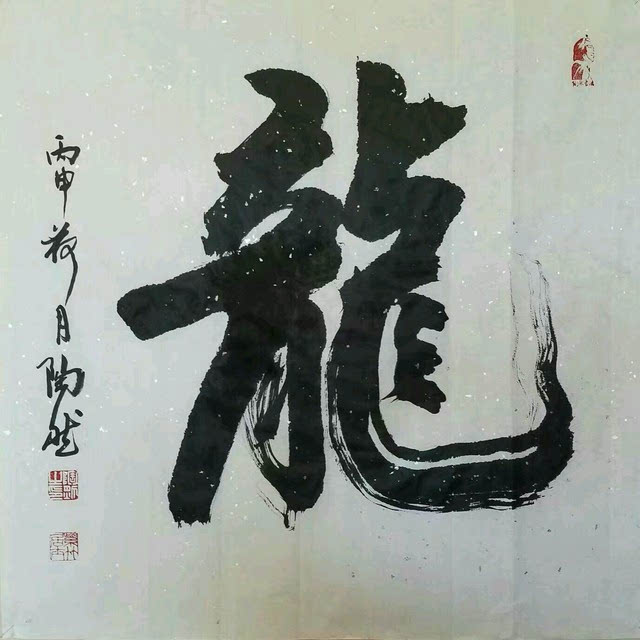 龍
丙申荷月陶然